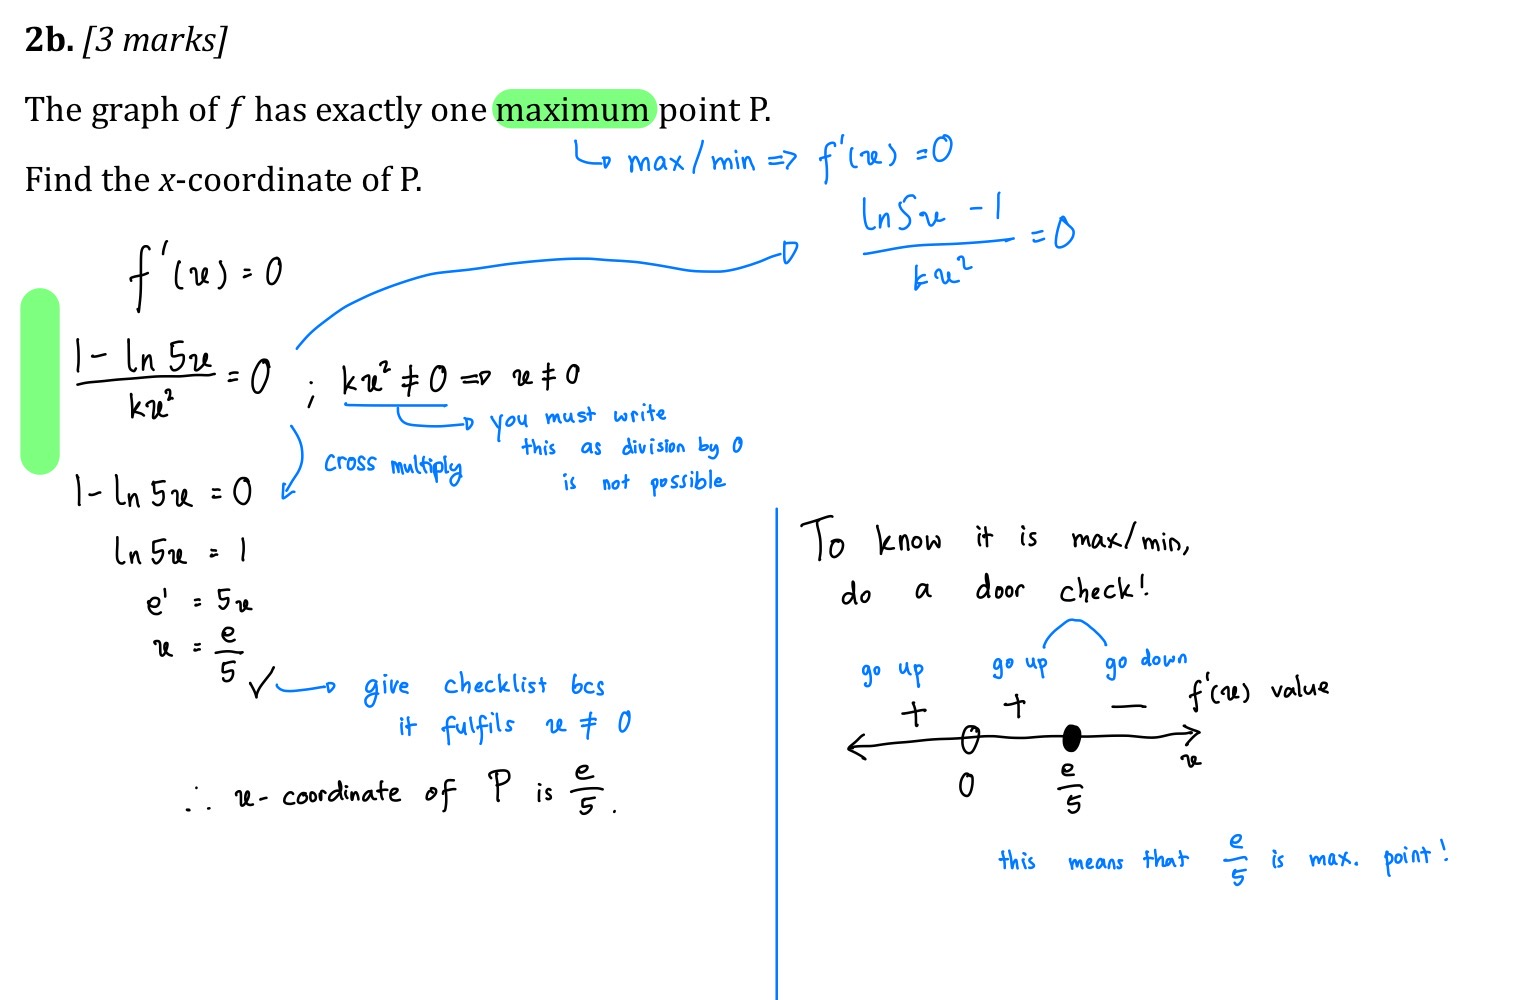 2b. [3 marks]
The graph of f has exactly one maximum point P.
↳ max/min => f'(x) = 0
Find the x-coordinate of P.
(ln 5x - 1)/(kx²) = 0
f'(x) = 0
(1 - ln 5x)/(kx²) = 0 ; kx² ≠ 0 => x ≠ 0
you must write
this as division by 0
is not possible
cross multiply
1 - ln 5x = 0
ln 5x = 1
e¹ = 5x
x = e/5 ✓
give checklist bcs
it fulfils x ≠ 0
∴ x-coordinate of P is e/5.
To know it is max/min,
do a door check!
go up go up go down
+ + — f'(x) value
x
0 e/5
this means that e/5 is max. point!